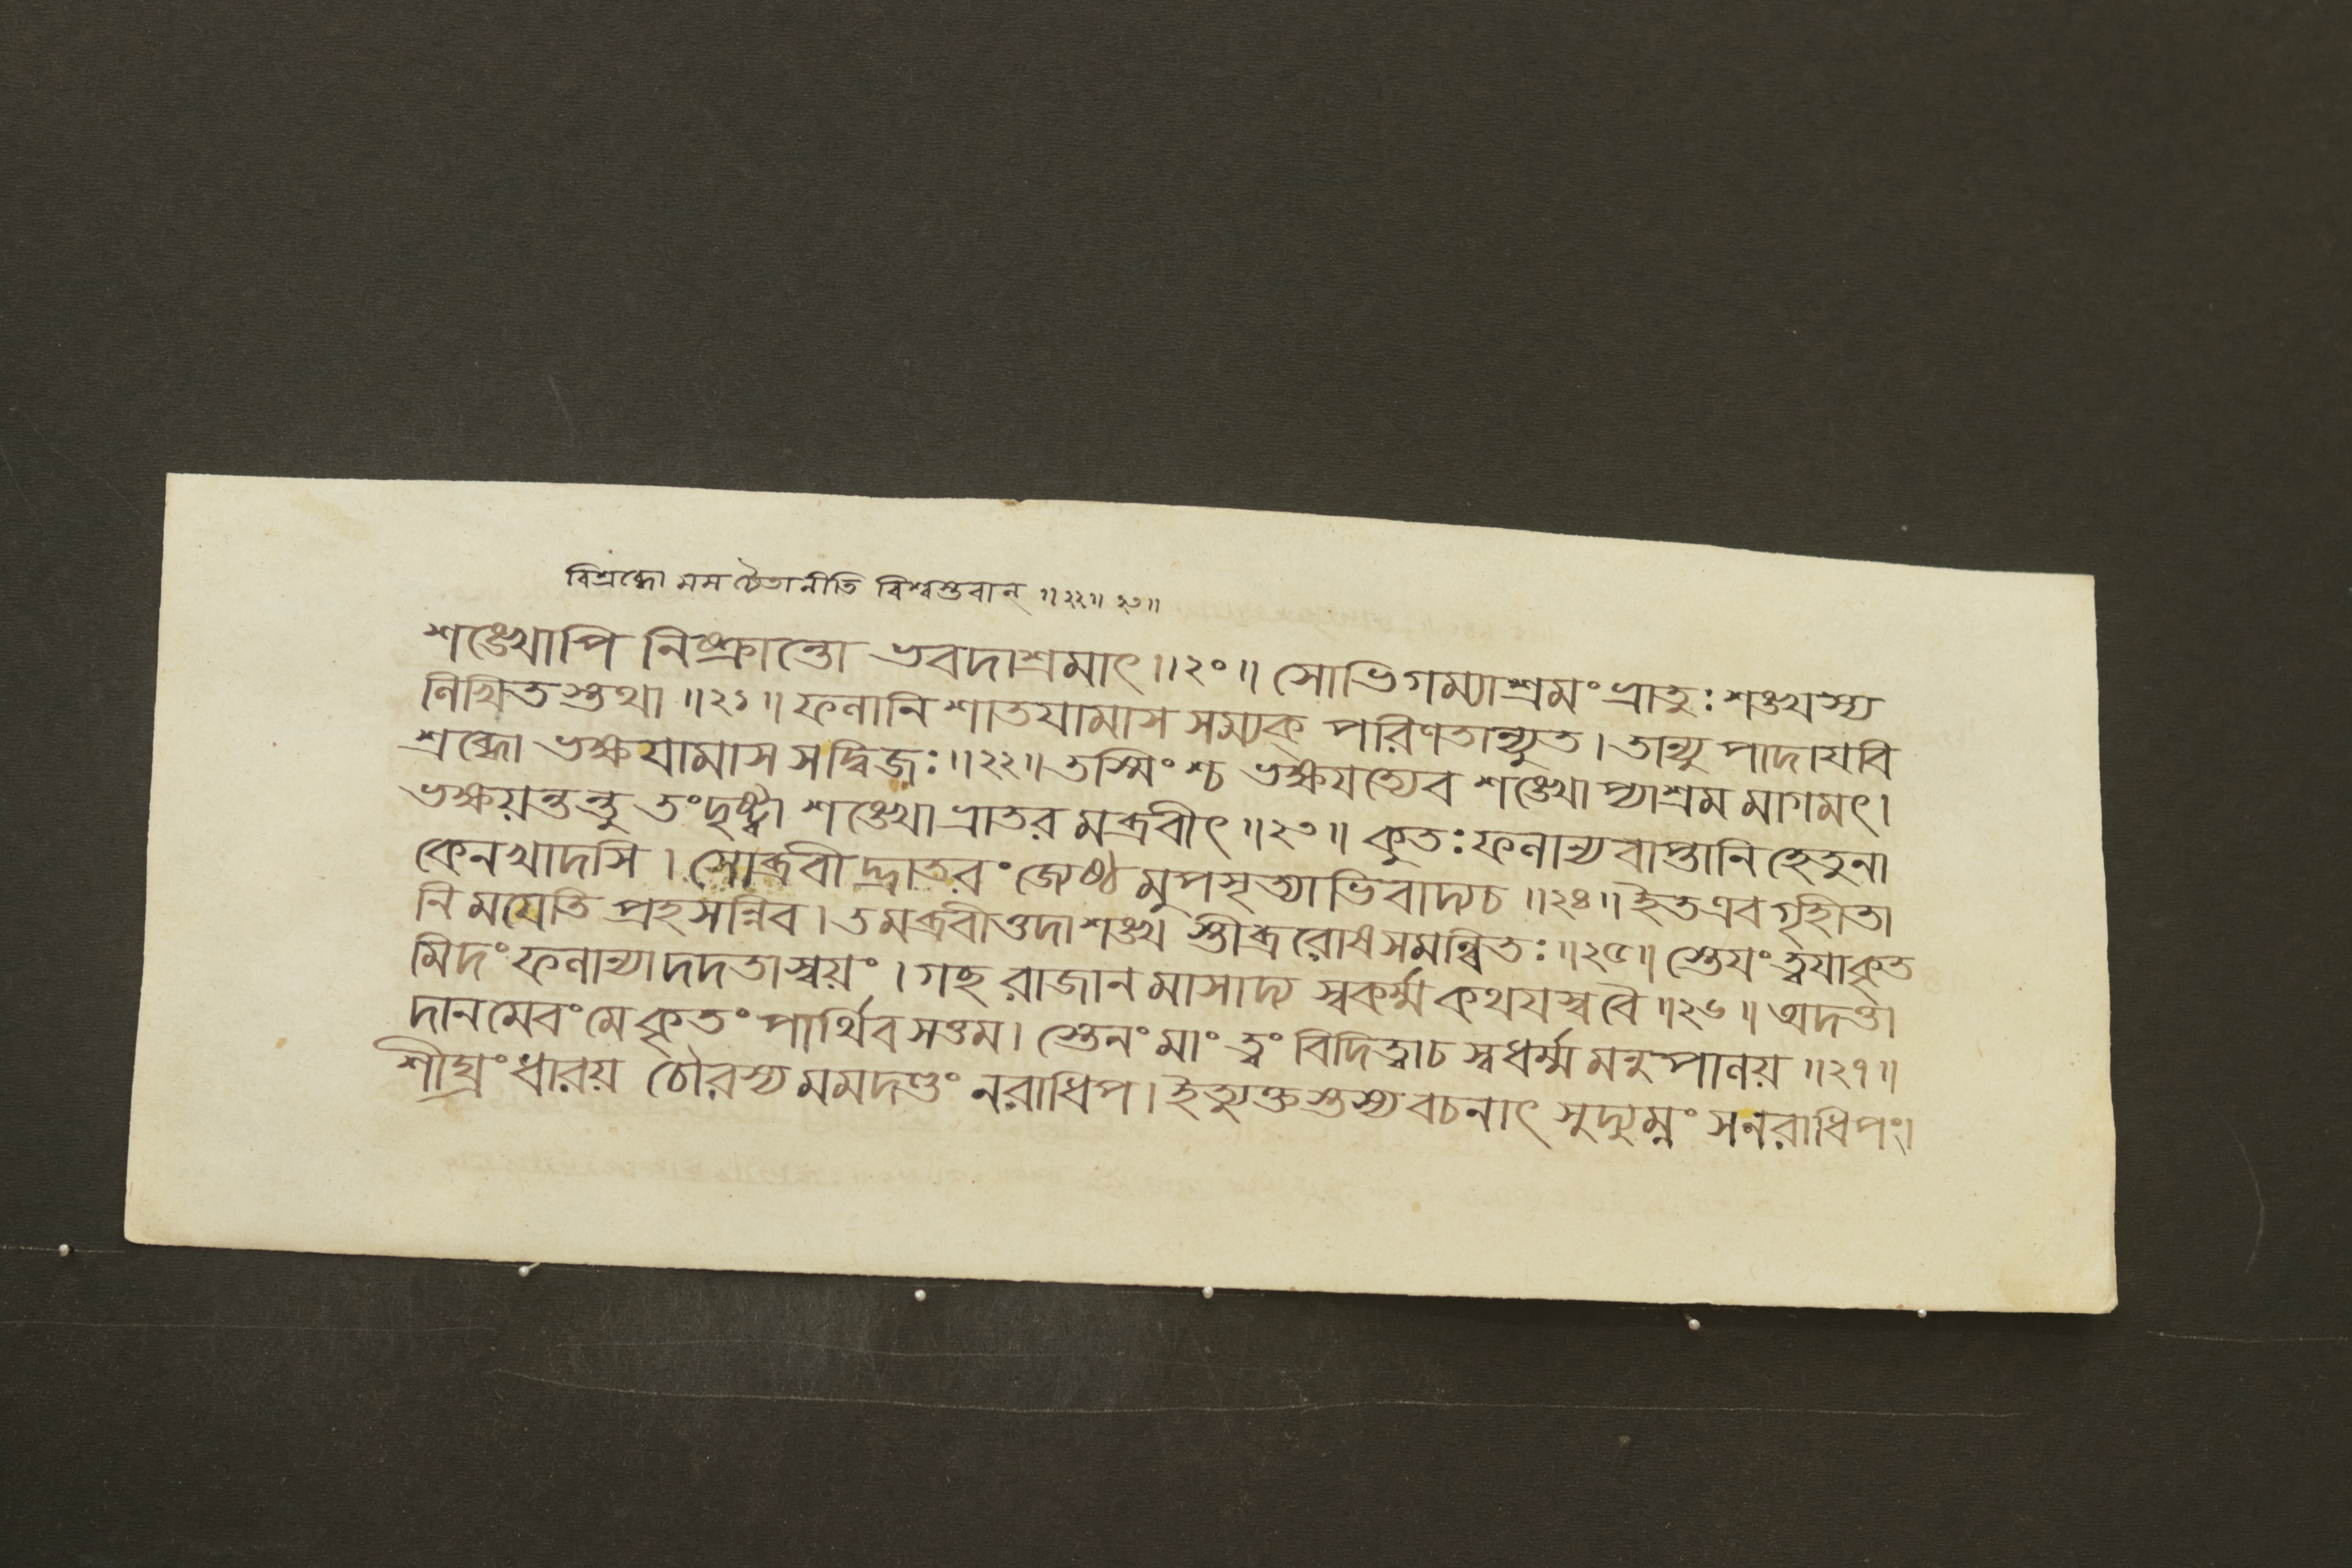 বিশ্রব্ধো মম চৈতানীতি বিশ্বস্তবান্ ॥২২॥ ২৩॥
শঙ্খোপি নিষ্ক্রান্তো ভবদাশ্রমাৎ ॥২০॥ সোভিগম্যাশ্রমং ভ্রাতুঃ শঙ্খস্য
লিখিতস্তথা ॥২১॥ ফলানি শাতযামাস সম্যক্ পরিণতান্যুত। তান্যুপাদাযবি
শ্রব্ধো ভক্ষযামাস সদ্বিজঃ॥২২॥ তস্মিংশ্চ ভক্ষযত্যেব শঙ্খো প্যাশ্রম মাগমৎ।
ভক্ষয়ন্তন্তু তংদৃষ্ট্বা শঙ্খো ভ্রাতর মব্রবীৎ ॥২৩॥ কুতঃ ফলান্যবাপ্তানি হেতুনা
কেনখাদসি। সোব্রবীদ্ভ্রাতরং জ্যেষ্ঠ মুপসৃত্যাভিবাদ্যচ ॥২৪॥ ইত এব গৃহীতা
নি মযেতি প্রহসন্নিব। তমব্রবীত্তদা শঙ্খ স্তীব্র রোষসমন্বিতঃ ॥২৫॥ স্তেযং ত্বযাকৃত
মিদং ফলান্যাদদতা স্বয়ং। গচ্ছ রাজান মাসাদ্য স্বকর্ম্ম কথযস্ব বৈ ॥২৬॥ অদত্তা
দানমেবং মে কৃতং পার্থিব সত্তম। স্তেনং মাং ত্বং বিদিত্বাচ স্বধর্ম্ম মনুপালয় ॥২৭॥
শীঘ্রং ধারয় চৌরস্য মমদণ্ডং নরাধিপ। ইত্যুক্তস্তস্য বচনাৎ সুদ্যুম্নং সনরাধিপং।